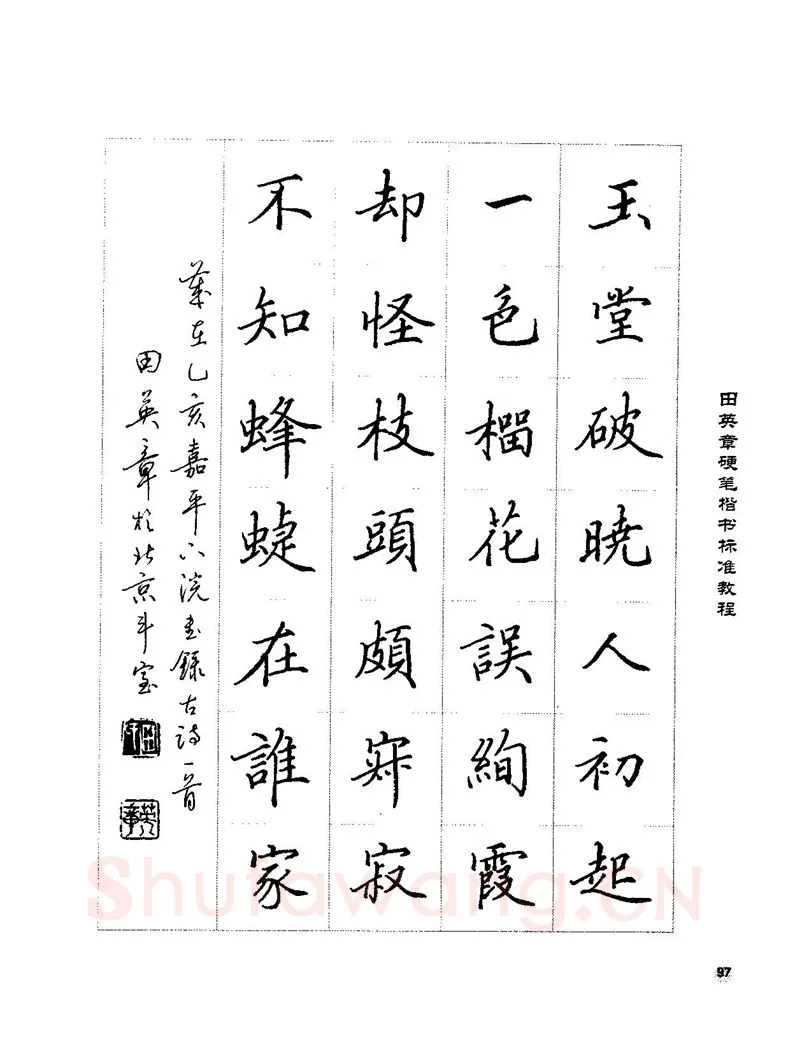 玉堂破曉人初起
一色榴花誤絢霞
却怪枝頭頗寂寂
不知蜂蜨在誰家
歲在乙亥嘉平六浣書錄古詩一首
田英章於北京斗室
田英章硬笔楷书标准教程
Shufawang.CN
97